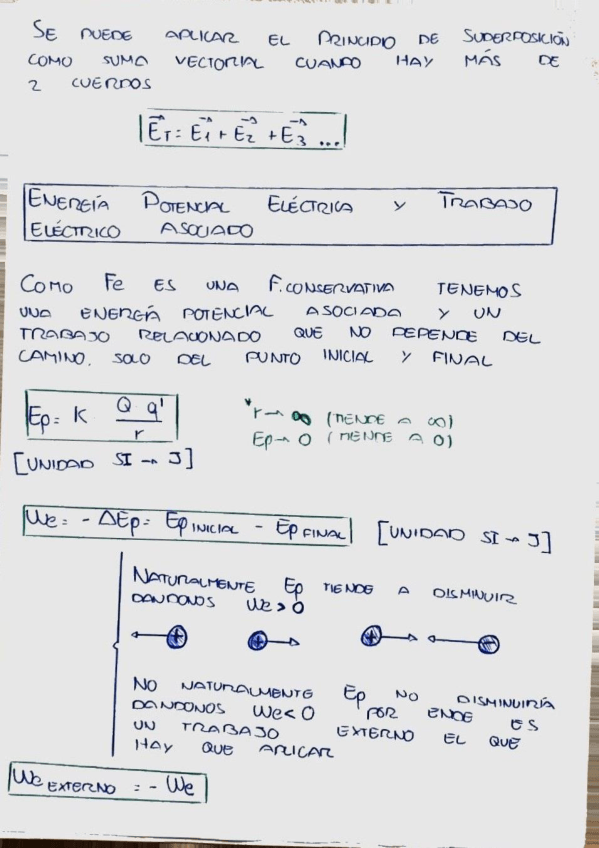 SE PUEDE APLICAR EL PRINCIPIO DE SUPERPOSICIÓN
COMO SUMA VECTORIAL CUANDO HAY MÁS DE
2 CUERPOS
E⃗T = E⃗1 + E⃗2 + E⃗3 ...
ENERGÍA POTENCIAL ELÉCTRICA Y TRABAJO
ELÉCTRICO ASOCIADO
COMO Fe ES UNA F. CONSERVATIVA TENEMOS
UNA ENERGÍA POTENCIAL ASOCIADA Y UN
TRABAJO RELACIONADO QUE NO DEPENDE DEL
CAMINO. SOLO DEL PUNTO INICIAL Y FINAL
Ep = K Q q' / r
*r → ∞ (TIENDE A ∞)
Ep → 0 (TIENDE A 0)
[UNIDAD SI → J]
We = - ΔEp = Ep INICIAL - Ep FINAL [UNIDAD SI → J]
NATURALMENTE Ep TIENDE A DISMINUIR
DANDONOS We > 0
+ + + -
NO NATURALMENTE Ep NO DISMINUIRÍA
DANDONOS We < 0 POR ENDE ES
UN TRABAJO EXTERNO EL QUE
HAY QUE APLICAR
We EXTERNO = - We